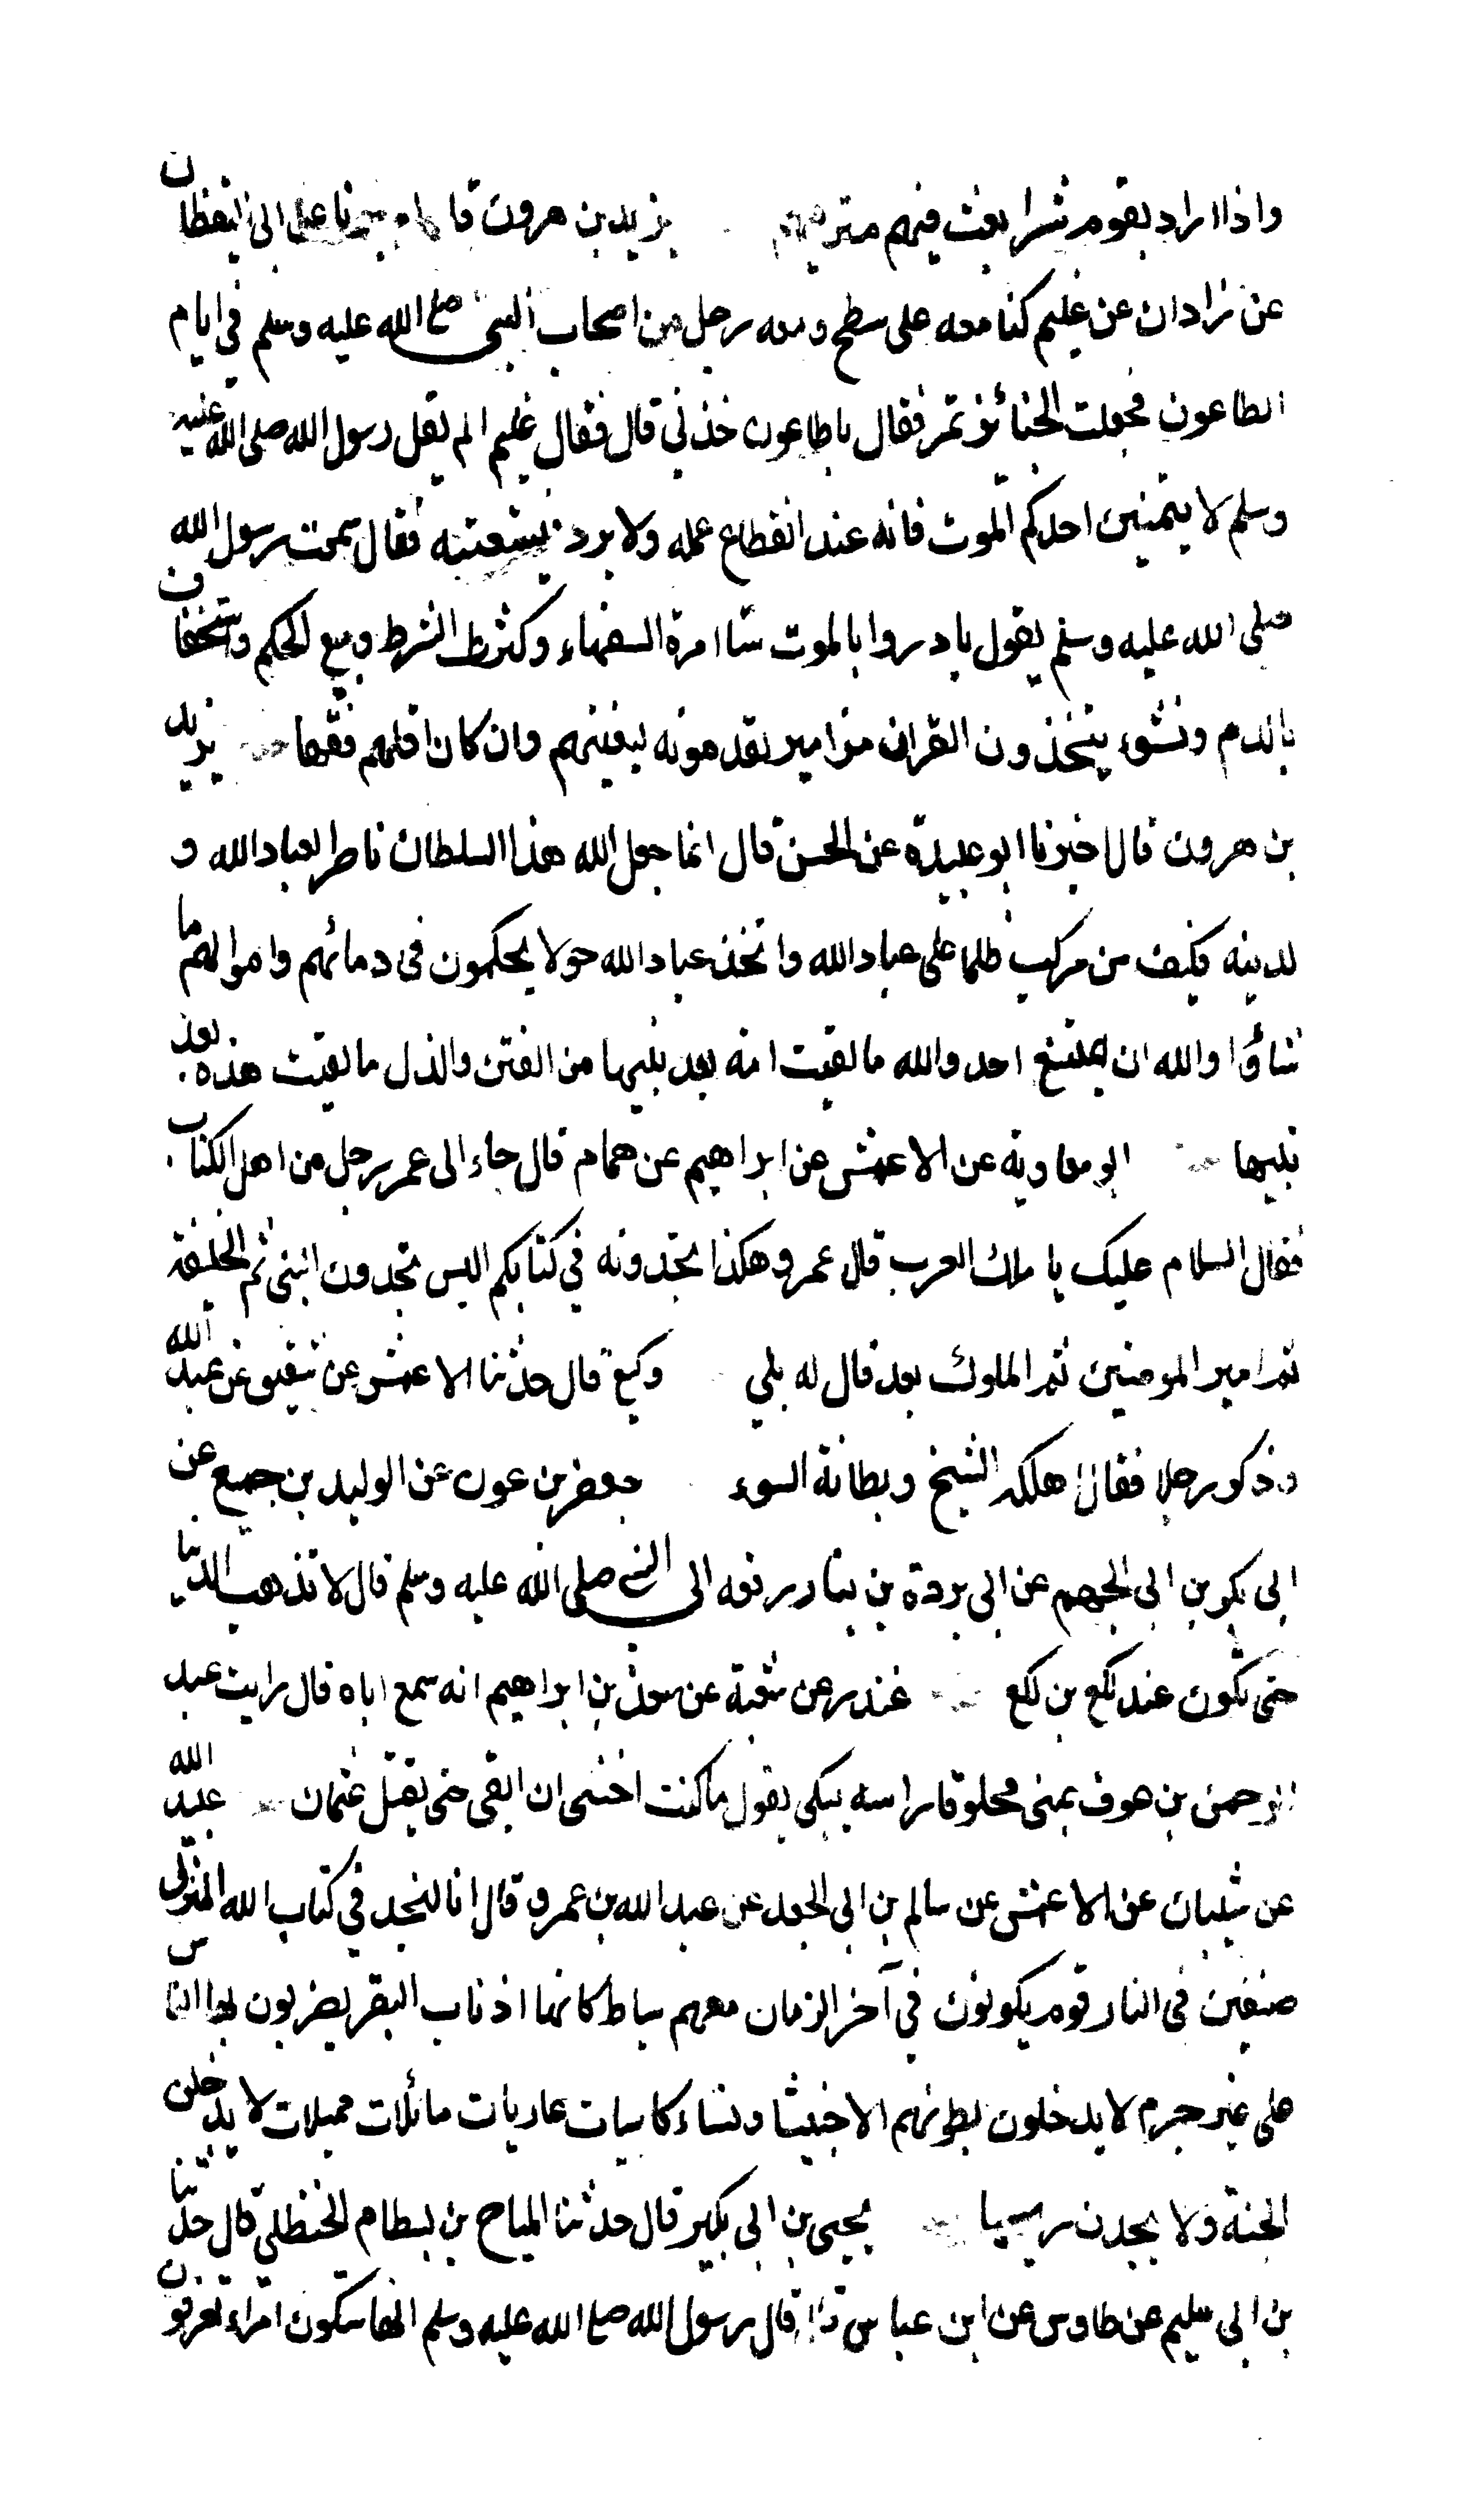 واذا اراد بقوم شرا بعث فيهم مترفيهم يزيد بن هرون قال ابى اليقظان
عن زادان عن عليم كنا معه على سطح ومعه رجل من اصحاب النبى صلع الله عليه وسلم في ايام
الطاعون فجعلت الجنائز تمر فقال ياطاعون خذني قال فقال عليم الم يقل رسول الله صلى الله عليه
وسلم لا يتمنين احدكم الموت فانه عند انقطاع عمله ولا يرد فيستعتبه فقال سمعت رسول الله
صلى الله عليه وسلم يقول بادروا بالموت ستا امرة السفهاء وكثرة الشرط وبيع الحكم واستخفاف
بالدم ونشوء يتخذون القران مزامير يقدمونه ليغنيهم وان كان اقلهم فقها يزيد
بن هرون قال اخبرنا ابو عبيدة عن الحسن قال انما جعل الله هذا السلطان ناصرا لعباد الله و
لدينه فكيف من مركب ظلما على عباد الله واتخذ عباد الله حولا يحكمون فى دمائهم واموالهم ما
شاؤا والله ان يمتنع احد والله ما لقيت امة بعد نبيها من الفتن والذل ما لقيت هذه بعد
نبيها ابو معاوية عن الاعمش عن ابراهيم عن همام قال جاء الى عمر رجل من اهل الكتاب
فقال السلام عليك يا ملك العرب قال عمر وهكذا تجدونه في كتابكم اليس تجدون النبى ثم الخليفة
ثم امير المومنين ثم الملوك بعد قال له بلي وكيع قال حدثنا الاعمش عن شقيق عن عبد الله
وذكر رجلا فقال اهلكه الشيخ وبطانة السوء جعفر بن عون عن الوليد بن جميع عن
ابى بكر بن ابى الجهم عن ابى بردة بن نيار رفعه الى النبى صلى الله عليه وسلم قال لا تذهب الدنيا
حتى تكون عند لكع بن لكع غندر عن شعبة عن سعد بن ابراهيم انه سمع اباه قال رايت عبد
الرحمن بن عوف بمنى محلوقا راسه يبكى يقول ما كنت اخشى ان ابقى حتى يقتل عثمان عبيد الله
عن شيبان عن الاعمش عن سالم بن ابى الجعد عن عبد الله بن عمرو قال انا لنجد في كتاب الله المنزل
صنفين فى النار قوم يكونون في آخر الزمان معهم سياط كانها اذناب البقر يضربون بها الناس
على غير جرم لا يدخلون بطونهم الا خبيثا ونساء كاسيات عاريات مائلات مميلات لا يدخلن
الجنة ولا يجدن ريحها يحيى بن ابى بكير قال حدثنا الهياج بن بسطام الحنظلي قال حدثنا
بن ابى سليم عن طاوس عن ابن عباس قال قال رسول الله صلع الله عليه وسلم انها ستكون امراء تعرفون